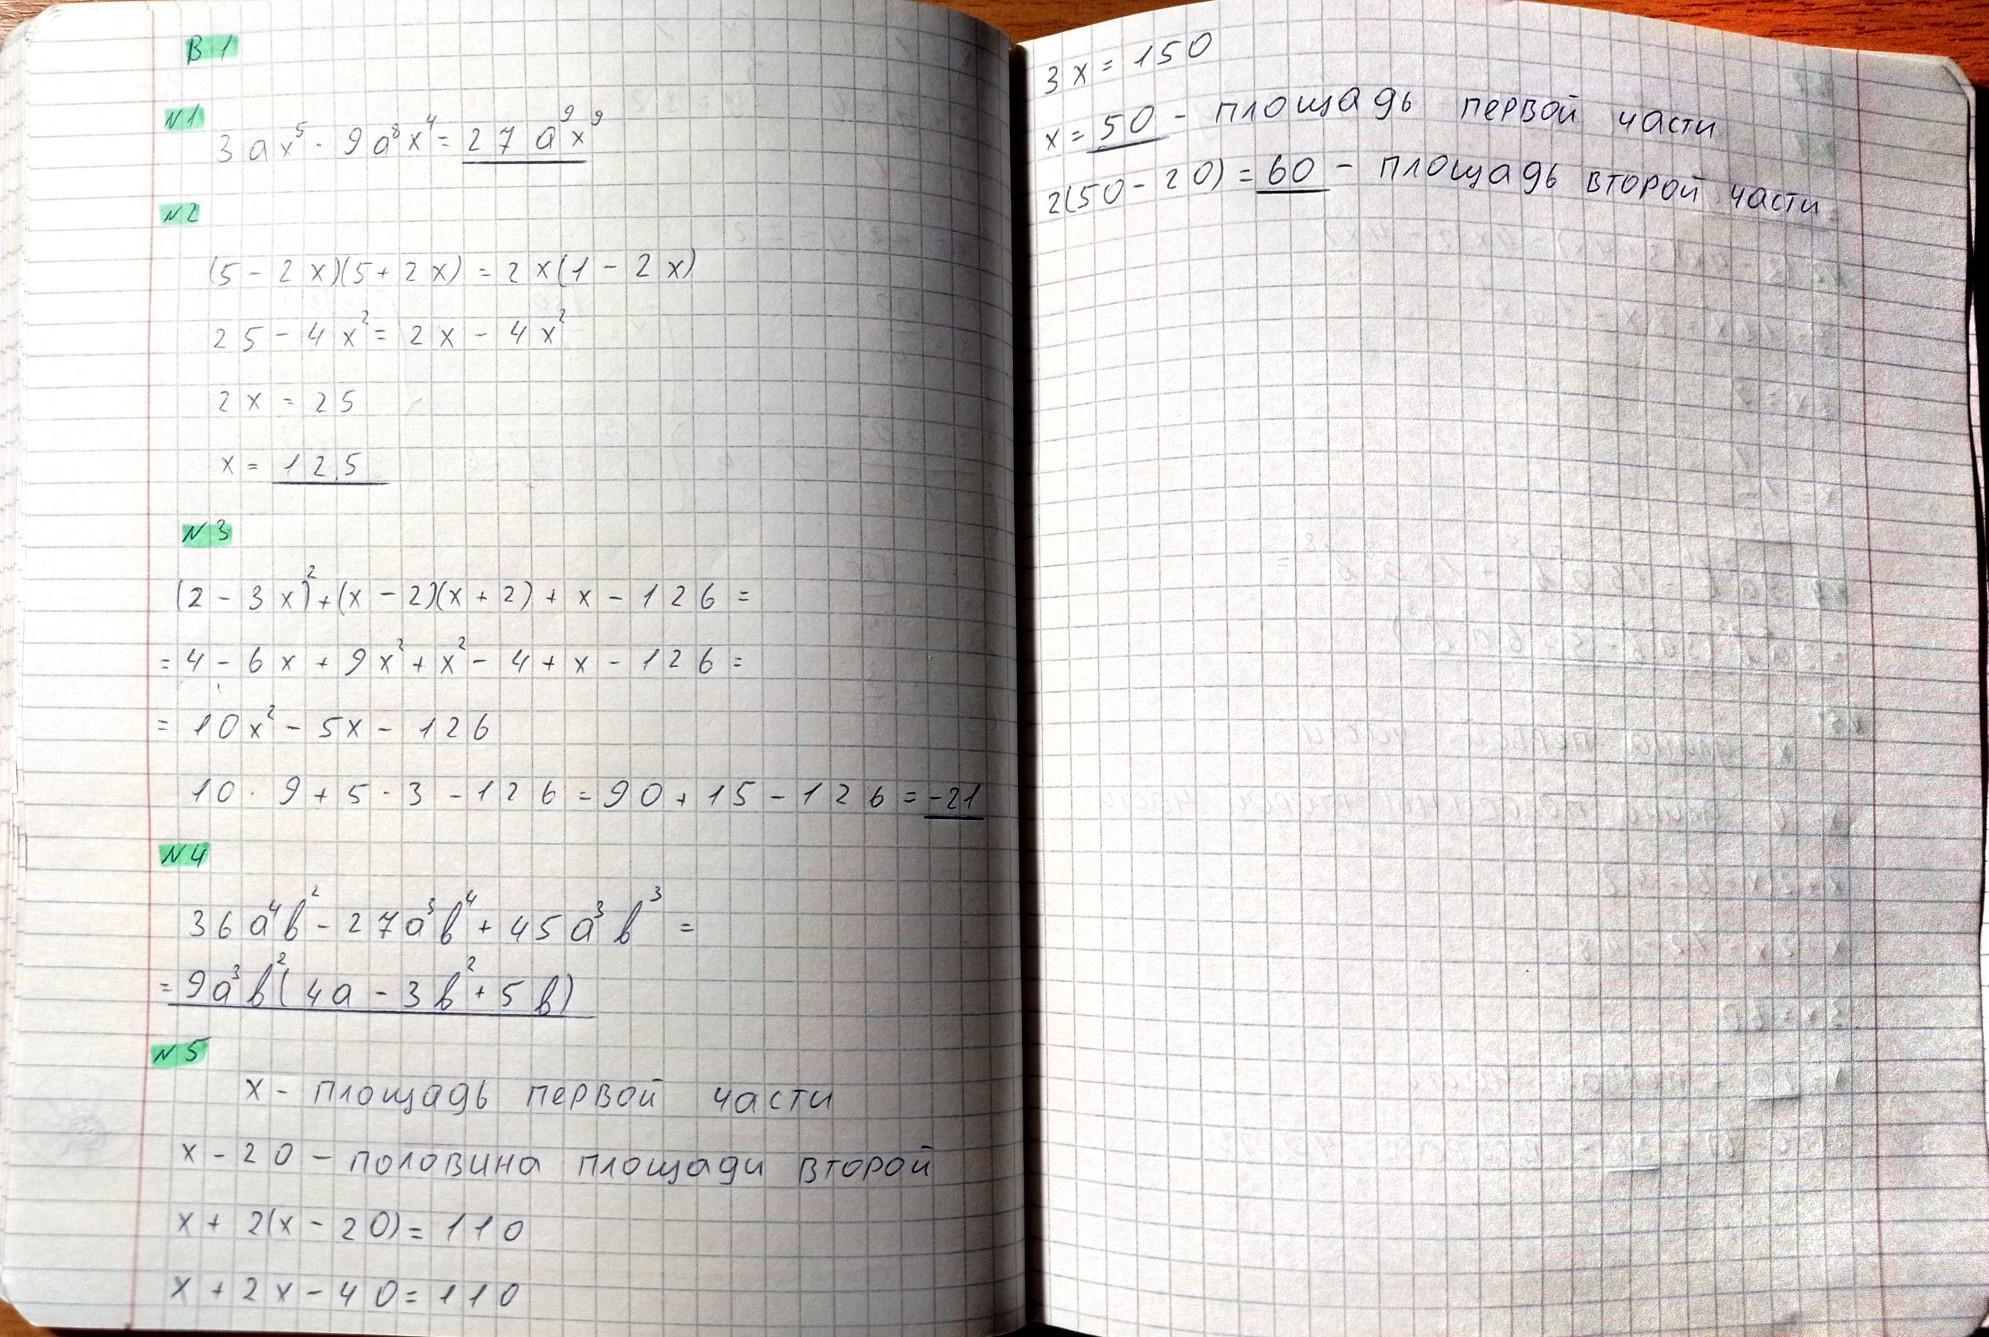 В 1
N1
3ax⁵ · 9a⁸x⁴ = 27a⁹x⁹
N2
(5 - 2x)(5 + 2x) = 2x(1 - 2x)
25 - 4x² = 2x - 4x²
2x = 25
x = 12,5
N3
(2 - 3x)² + (x - 2)(x + 2) + x - 126 =
= 4 - 6x + 9x² + x² - 4 + x - 126 =
= 10x² - 5x - 126
10 · 9 + 5 · 3 - 126 = 90 + 15 - 126 = -21
N4
36a⁴b² - 27a³b⁴ + 45a³b³ =
= 9a³b²(4a - 3b² + 5b)
N5
x - площадь первой части
x - 20 - половина площади второй
x + 2(x - 20) = 110
x + 2x - 40 = 110
3x = 150
x = 50 - площадь первой части
2(50 - 20) = 60 - площадь второй части